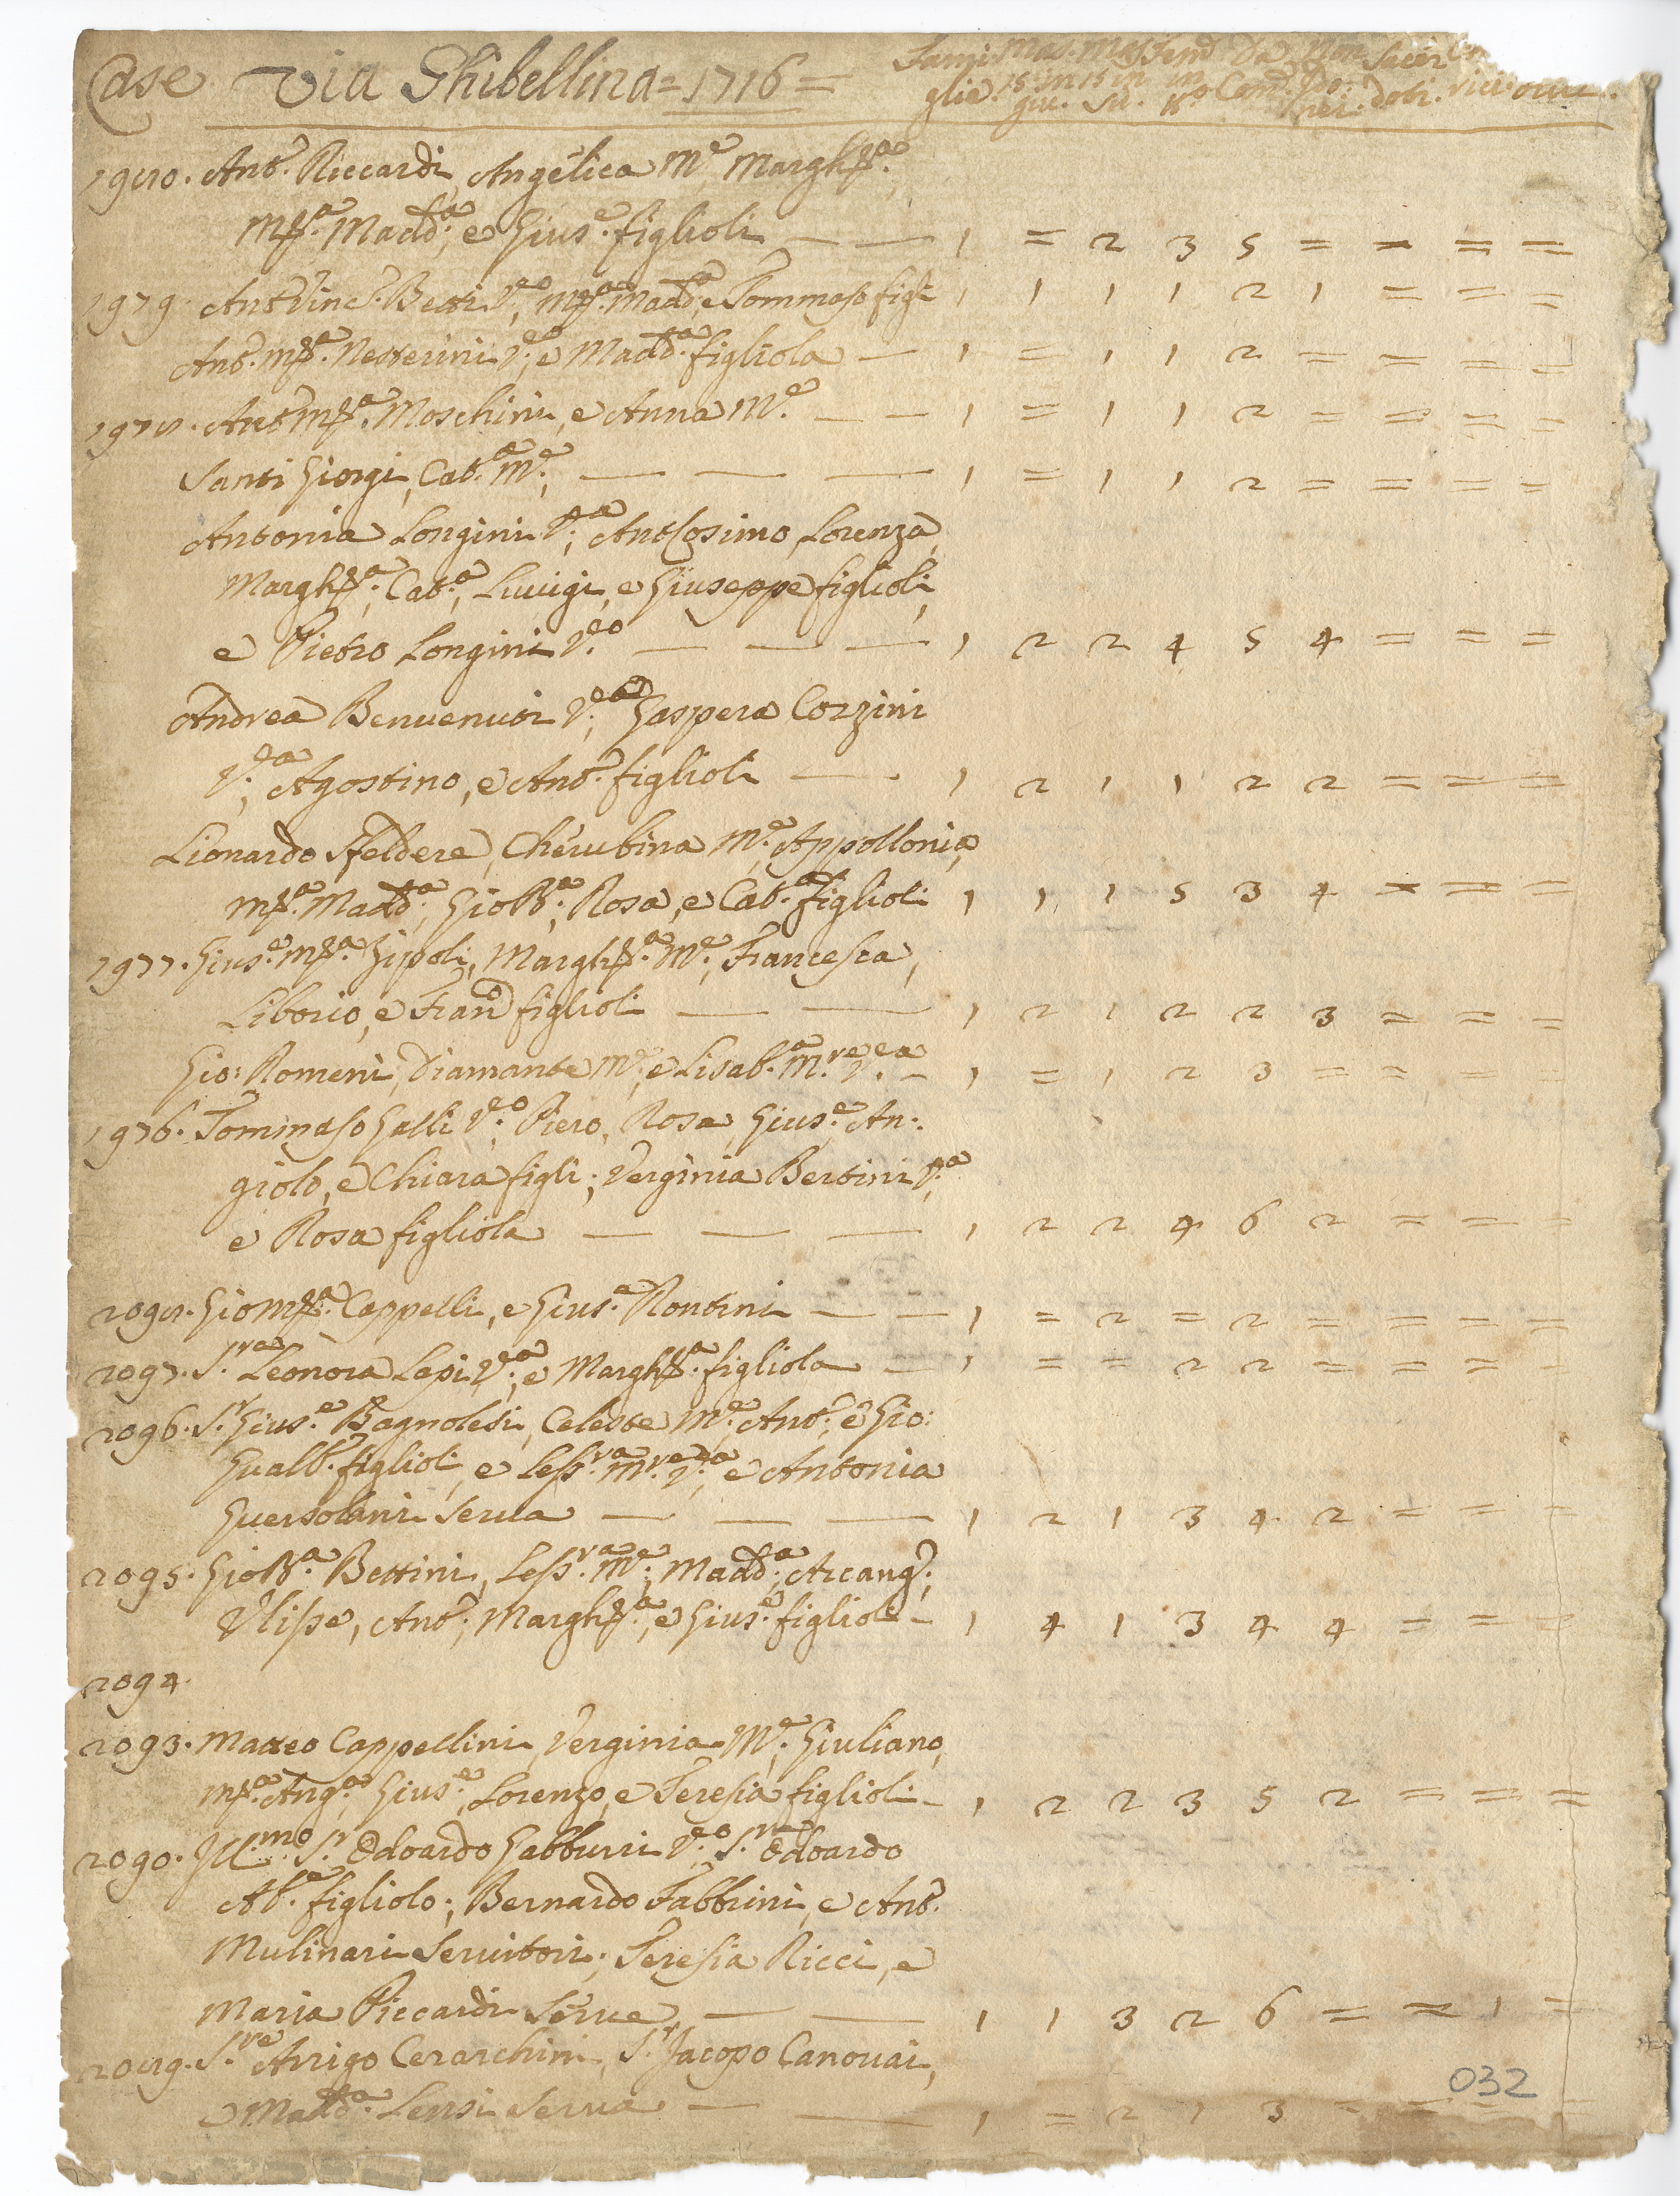 Case Via Ghibellina = 1716 = Fami: Mas. Mas Fem.
glie. 15 in 15 in in Com.
giu. su. dobi.
1980. Ant.º Riccardi, Angelica M.e Margh.ta
M.a Madd.a, e Gius.e figlioli — — 1 = 2 3 5 = = = =
1979. Ant.º Vinc.º Betti V.do, M.a Madd.a, e Tommaso figli 1 1 1 1 2 1 = = =
Ant.º M.a Nesterini V.do, e Madd.a figliola — 1 = 1 1 2 = = = =
1978. Ant.º M.a Moschini, e Anna M.e — — 1 = 1 1 2 = = = =
Santi Giorgi, Cat.a M.e, — — — 1 = 1 1 2 = = = =
Antonia Longini V.a, Ant.º Cosimo, Lorenza,
Margh.ta, Cat.a, Luuigi, e Giuseppe figlioli,
e Pietro Longini V.do — — — 1 2 2 4 5 4 = = =
Andrea Benuenuti V.do, Gaspera Corzini
V.da, Agostino, e Ant.º figlioli — . 1 2 1 1 2 2 = = =
Lionardo Sfeldere, Cherubina M.e, Appollonia,
M.a Madd.a, Gio B.a, Rosa, e Cat.a figlioli 1 1 1 5 3 4 = = =
1977. Gius.e M.a Gipoli, Margh.ta M.e, Francesca,
Liborio, e Fran.º figlioli — — 1 2 1 2 2 3 = = =
Gio: Romeni, Diamante M.e, e Lisab.a M.re V.da — 1 = 1 2 3 = = = =
1976. Tommaso Galli V.do, Piero, Rosa, Gius.e, An:
giolo, e Chiara figli; Verginia Bertini V.a
e Rosa figliola — — — 1 2 2 4 6 2 = = =
2098. Gio M.a Cappelli, e Gius.e Rontini — — 1 = 2 = 2 = = = =
2097. S.ra Leonora Lapi V.da, e Margh.ta figliola — 1 = = 2 2 = = = =
2096. S.r Gius.e Bagnolesi, Celeste M.e, Ant.º, e Gio:
Gualb.º figlioli, e Less.ra M.re V.da, e Antonia
Guersolini Serua — — — 1 2 1 3 4 2 = = =
2095. Gio B.a Bettini, Less.ra M.e, Madd.a, Arcang.º,
Ulisse, Ant.º, Margh.ta, e Gius.e figlioli — 1 4 1 3 4 4 = = =
2094.
2093. Matteo Cappellini, Verginia M.e, Giuliano,
M.a Ang.a, Gius.e, Lorenzo, e Teresia figlioli — 1 2 2 3 5 2 = = =
2090. Ill.mo S.r Odoardo Gabburri V.do, S.r Odoardo
Ab.e figliolo; Bernardo Fabbrini, e Ant.º
Mulinari Seruitori; Teresia Ricci, e
Maria Piccardi Serue — — 1 1 3 2 6 = = 1 =
2089. S.re Arrigo Cerarchini, S.r Jacopo Canouai,
e Madd.a Lensi Serua — — 1 = 2 1 3 = = = =
032